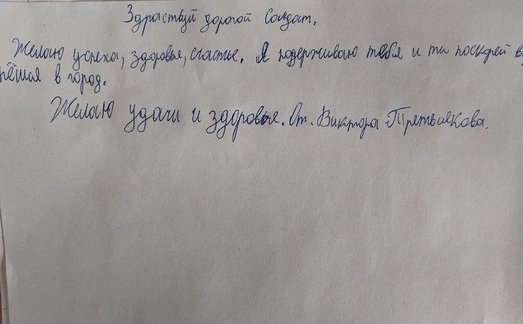 Здраствуй дорогой Солдат.
Желаю успеха, здоровья, счастье. Я подерживаю тебя и ты поскорей в
нёшся в город.
Желаю удачи и здоровье. От. Виктора Третьякова.